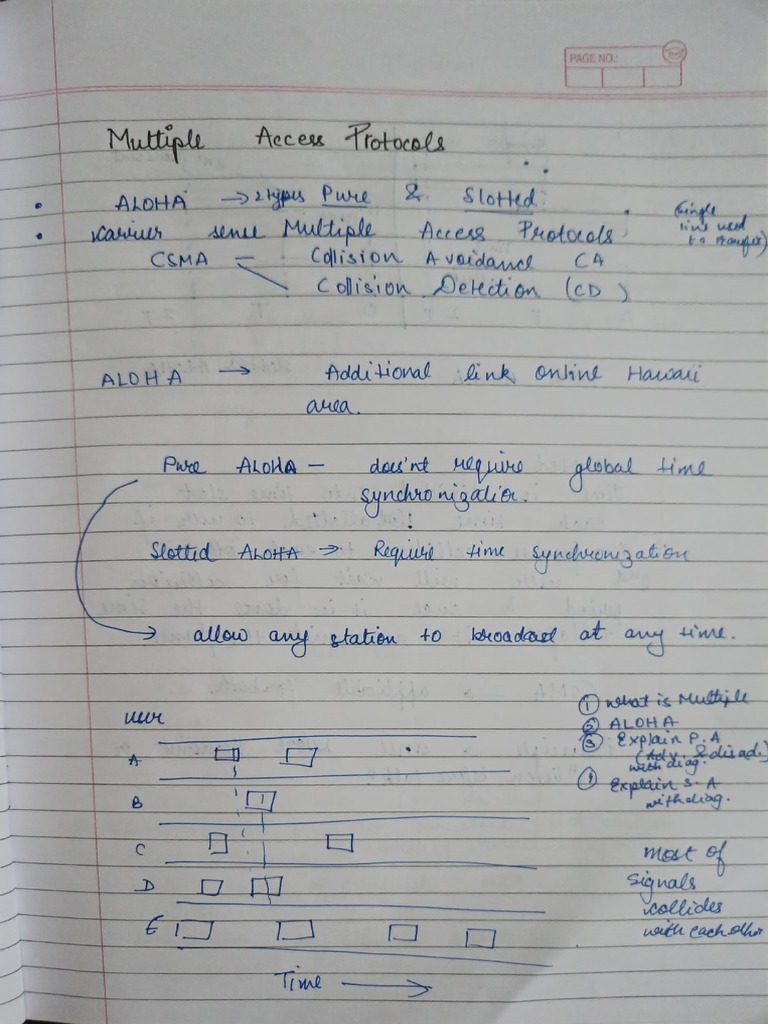 PAGE NO.:
Multiple Access Protocols
• ALOHA → 2 types Pure & Slotted
(single line used to transfer)
• Karrier sense Multiple Access Protocols
CSMA – Collision Avoidance CA
Collision Detection (CD)
ALOHA → Additional link online Hawaii
area.
Pure ALOHA – does'nt require global time
synchronization.
Slotted ALOHA → Require time synchronization
→ allow any station to broadcast at any time.
① What is Multiple
② ALOHA
③ Explain P.A
(Adv. & disad.)
with diag.
④ Explain S.A
with diag.
user
A
B
C
D
E
most of
signals
collides
with each other
Time →